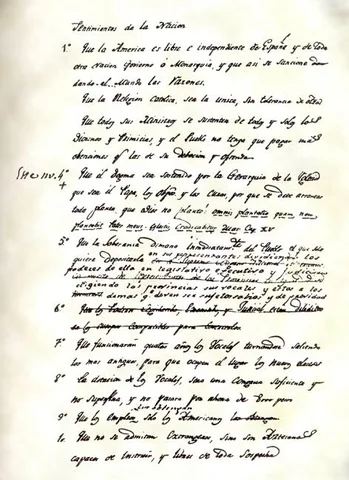 Sentimientos de la Nacion
1.º Que la America es libre e independiente de España y de toda
otra Nacion, Govierno o Monarquia, y que asi se sancione dan
dando al Mundo las razones.
Que la Religion Catolica, sea la unica, sin tolerancia de otra
Que todos sus Ministros se sustenten de todos y solos los
Diezmos y Primicias, y el Pueblo no tenga que pagar mas
obenciones q.e las de su devocion y ofrenda
4.º Que el Dogma sea sostenido por la Gerarquia de la Yglesia
que son el Papa, los Obpos y los Curas, por que se debe arrancar
toda planta que Dios no plantó: omnis plantatio quam non
plantavit Pater meus Celestis Eradicabitur Mat Cap XV
5.º Que la Soberania dimana inmediatam.te del Pueblo, el que solo
quiere depositarla en sus representantes dividiendo los
poderes de ella en legislativo executivo y Judiciario
eligiendo las Provincias sus vocales y estos a los
demas q. deven ser sujetos sabios y de probidad
6.º
7.º Que funcionarán quatro años los Vocales turnandose saliendo
los mas antiguos, para que ocupen el lugar los nuevos electos
8.º La dotacion de los Vocales, sera una congrua suficiente y
no superflua, y no pasara por ahora de 8000 pesos
9.º Que los Empleos solo los Americanos
los obtengan
10. Que no se admitan Extrangeros, sino son Artesanos
capaces de instruir, y libres de toda sospecha